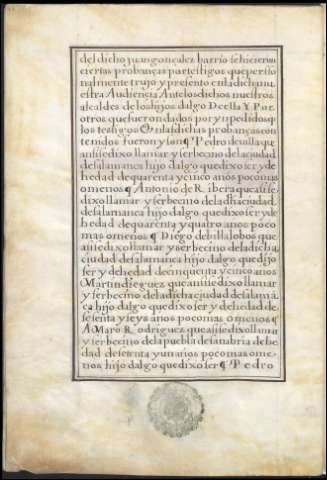 del dicho juan gonçalez barrio se hicieron
ciertas probanças por testigos que perso
nalmente trujo y presento en la dicha nu
estra Audiencia Ante los dichos nuestros
alcaldes de los hijos dalgo De ella Y Por
otros que fueron dados por
los testigos en las dichas probanças con
tenidos fueron y son Pedro de villa que
ansi se dixo llamar y ser becino de la ciudad
de salamanca hijo dalgo que dixo ser y de
hedad de quarenta y cinco años poco mas
o menos ¶ Antonio de R. ibera que asi se
dixo llamar y ser becino de la dha ciudad
de salamanca hijo dalgo que dixo ser y de
hedad de quarenta y quatro años poco
mas o menos ¶ Diego de billalobos que
ansi se dixo llamar y ser becino de la dicha
ciudad de salamanca hijo dalgo que dijo
ser y de hedad de cinquenta y cinco años
Martin dieguez que ansi se dixo llamar
y ser becino de la dicha ciudad de salama
ca hijo dalgo que dixo ser y de hedad de
sesenta y seys años poco mas o menos ¶
Amaro R. odriguez que asi se dixo llamar
y ser becino de la puebla de sanabria de he
dad de setenta y un años poco mas o me
nos hijo dalgo que dixo ser ¶ Pedro